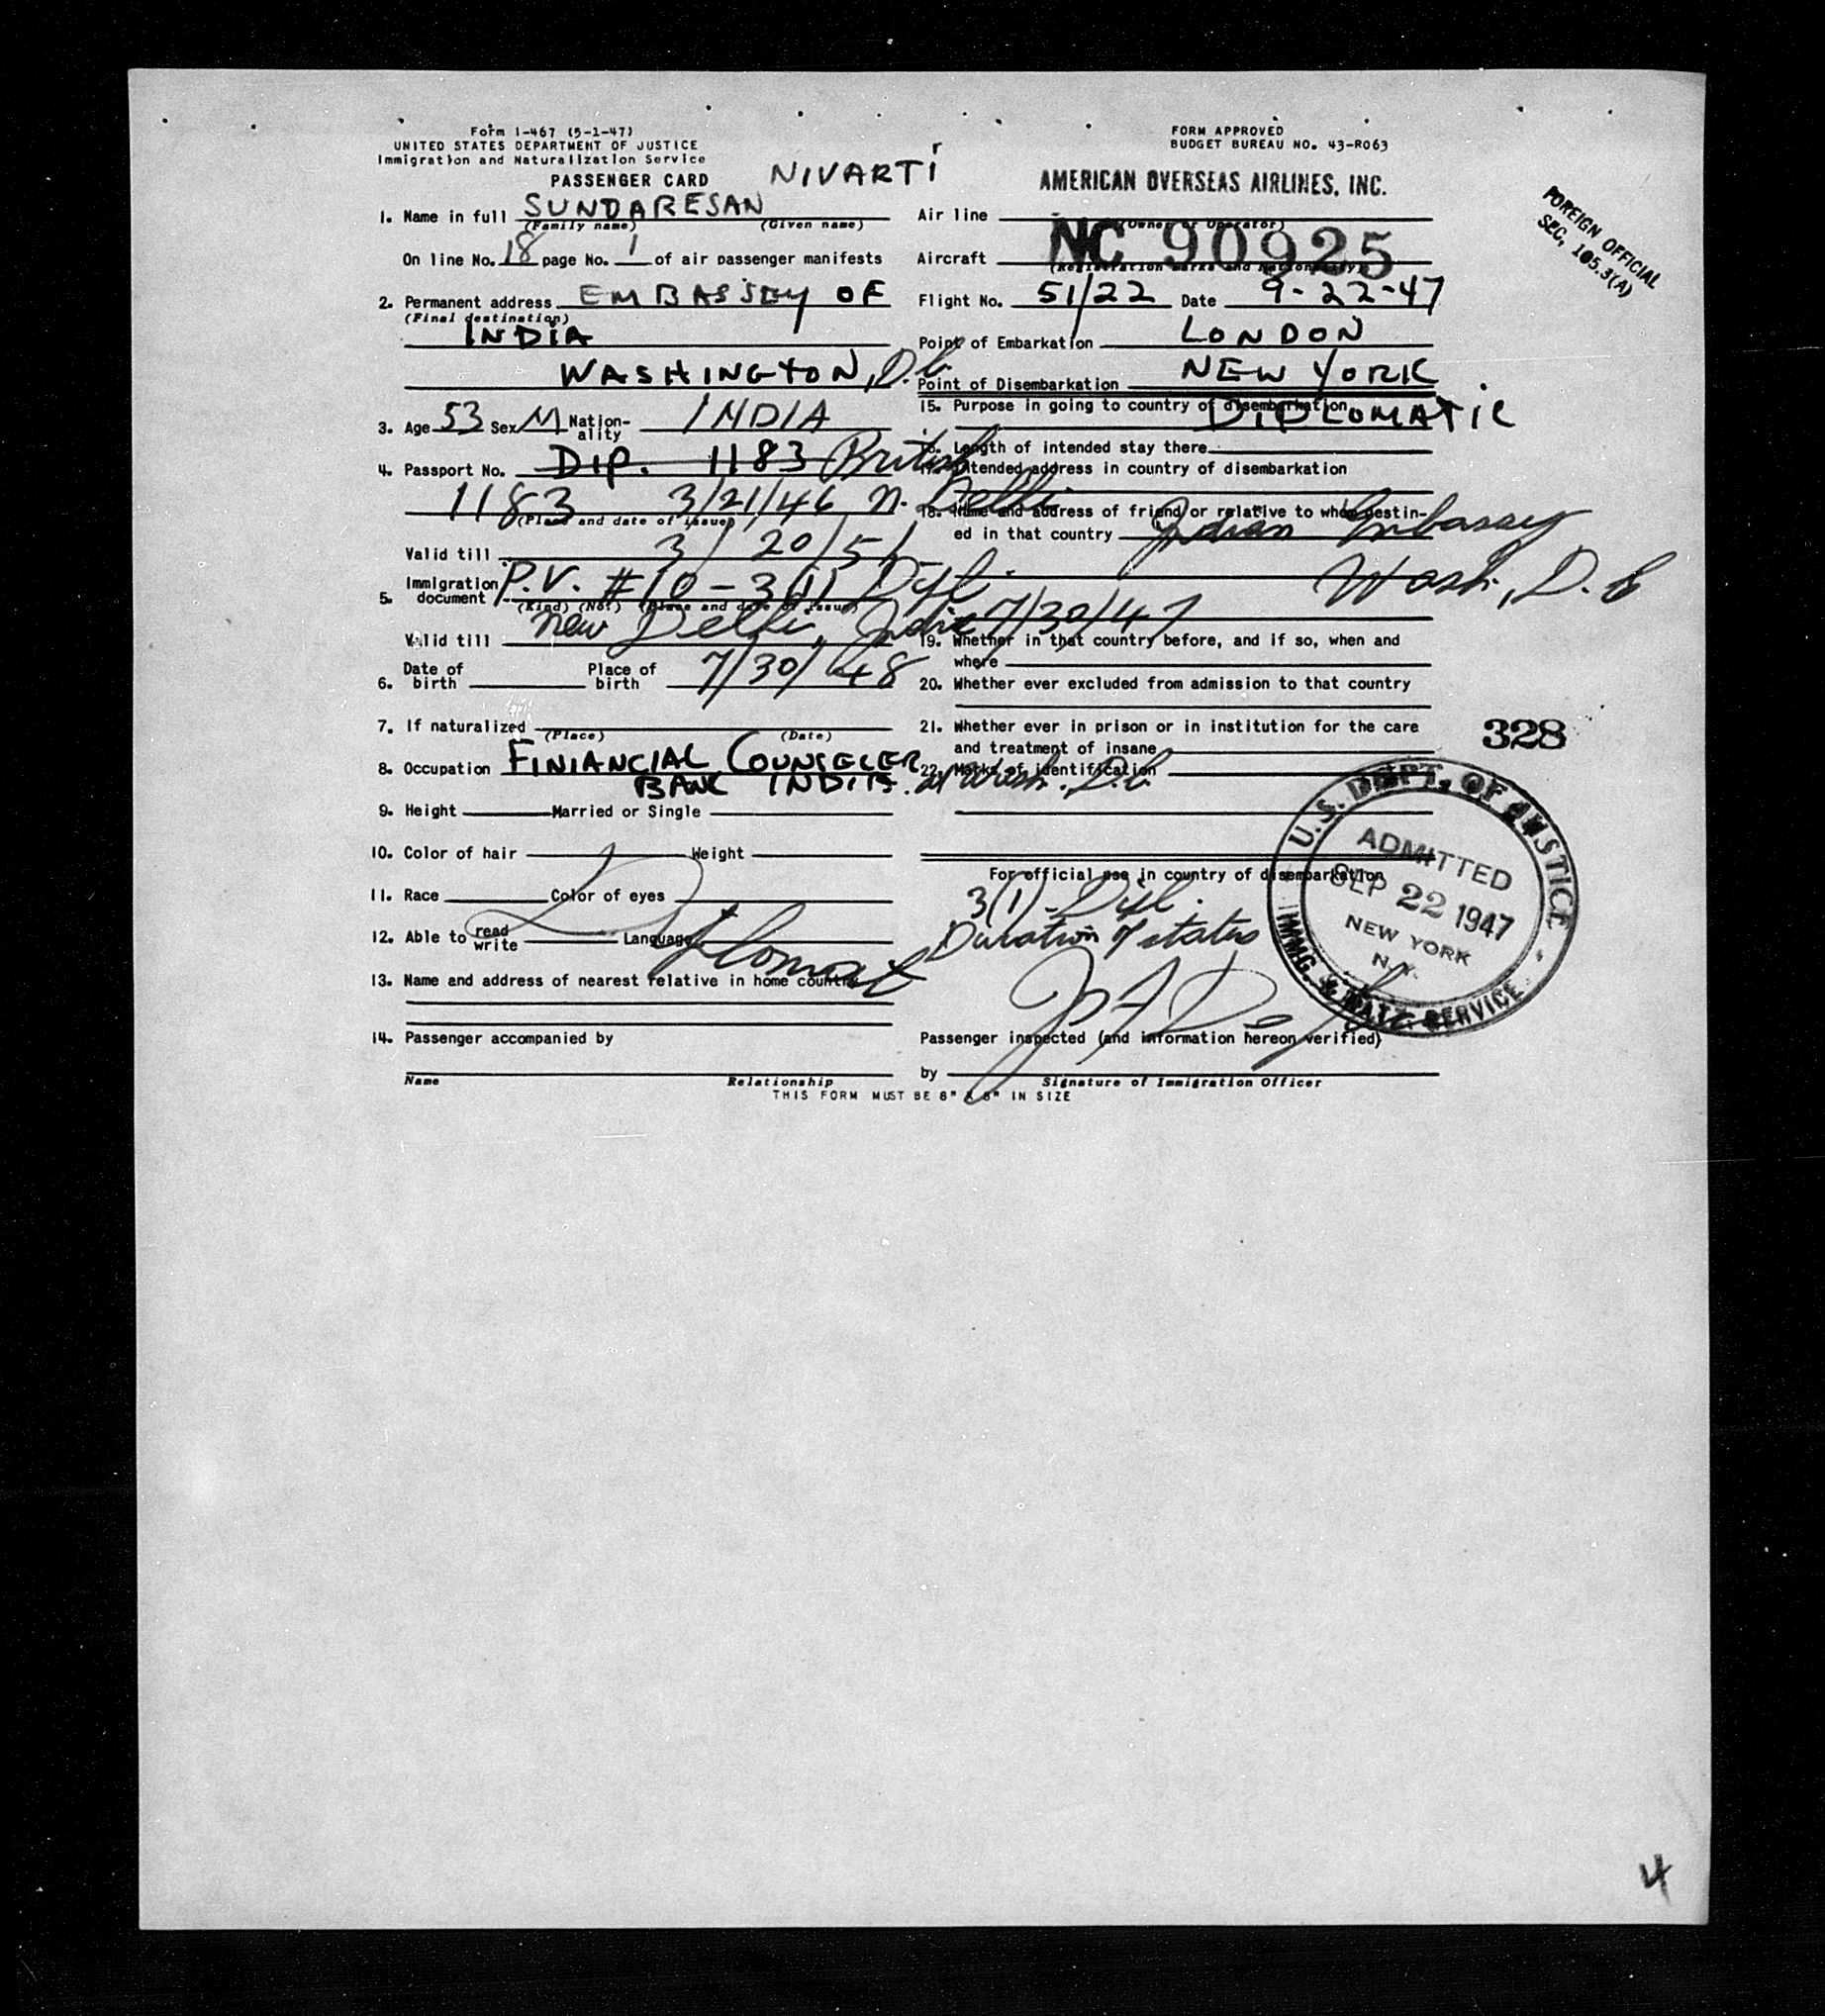 Form I-467 (5-1-47)
UNITED STATES DEPARTMENT OF JUSTICE
Immigration and Naturalization Service
PASSENGER CARD
NIVARTI
1. Name in full SUNDARESAN
(Family name) (Given name)
On line No. 18 page No. 1 of air passenger manifests
2. Permanent address EMBASSEY OF
(Final destination)
INDIA
WASHINGTON, D.C.
3. Age 53 Sex M Nation-ality INDIA
4. Passport No. DIP. 1183 British
1183 3/21/46 N. Delhi
(Place and date of issue)
Valid till 3/20/51
5. Immigration document P.V. #10-3(1) Dipl.
(Kind) (No.) (Place and date of issue)
New Delhi, India 7/30/47
Valid till
6. Date of birth Place of birth 7/30/48
7. If naturalized
(Place) (Date)
8. Occupation FINIANCIAL COUNSELER
BANK INDIA. at Wash. D.C.
9. Height Married or Single
10. Color of hair Weight
11. Race Color of eyes
12. Able to read write Language
Diplomat
13. Name and address of nearest relative in home country
14. Passenger accompanied by
Name Relationship
THIS FORM MUST BE 8" X 8" IN SIZE
FORM APPROVED
BUDGET BUREAU NO. 43-R063
AMERICAN OVERSEAS AIRLINES, INC.
Air line
(Owner or Operator)
Aircraft NC 90925
(Registration marks and Nationality)
Flight No. 51/22 Date 9-22-47
Point of Embarkation LONDON
Point of Disembarkation NEW YORK
15. Purpose in going to country of disembarkation
DIPLOMATIC
16. Length of intended stay there
17. Intended address in country of disembarkation
18. Name and address of friend or relative to whom destin-
ed in that country Indian Embassy
Wash., D.C.
19. Whether in that country before, and if so, when and
where
20. Whether ever excluded from admission to that country
21. Whether ever in prison or in institution for the care
and treatment of insane
22. Marks of identification
For official use in country of disembarkation
3(1) - Dipl.
Duration of status
Passenger inspected (and information hereon verified)
by
Signature of Immigration Officer
FOREIGN OFFICIAL
SEC. 105.3(A)
328
U.S. DEPT. OF JUSTICE
ADMITTED
SEP 22 1947
NEW YORK
N.Y.
IMMG. & NATZ. SERVICE
4